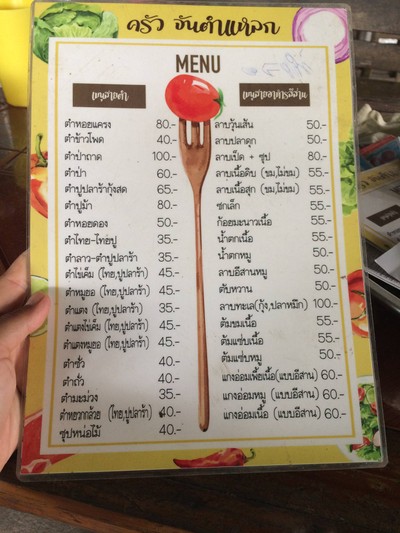 ครัว จันตำแหลก
MENU
เมนูสายตำ
ตำหอยแครง 80.-
ตำข้าวโพด 40.-
ตำปาถาด 100.-
ตำป่า 60.-
ตำปูปลาร้ากุ้งสด 65.-
ตำปูม้า 80.-
ตำหอยดอง 50.-
ตำไทย-ไทยปู 35.-
ตำลาว-ตำปูปลาร้า 35.-
ตำไข่เค็ม (ไทย,ปูปลาร้า) 45.-
ตำหมูยอ (ไทย,ปูปลาร้า) 45.-
ตำแตง (ไทย,ปูปลาร้า) 35.-
ตำแตงไข่เค็ม (ไทย,ปูปลาร้า) 45.-
ตำแตงหมูยอ (ไทย,ปูปลาร้า) 45.-
ตำซั่ว 40.-
ตำถั่ว 40.-
ตำมะม่วง 35.-
ตำหยวกกล้วย (ไทย,ปูปลาร้า) 40.-
ซุปหน่อไม้ 40.-
เมนูสายอาหารอีสาน
ลาบวุ้นเส้น 50.-
ลาบปลาดุก 50.-
ลาบเป็ด + ซุป 80.-
ลาบเนื้อดิบ (ขม,ไม่ขม) 55.-
ลาบเนื้อสุก (ขม,ไม่ขม) 55.-
ซกเล็ก 55.-
ก้อยมะนาวเนื้อ 55.-
น้ำตกเนื้อ 55.-
น้ำตกหมู 50.-
ลาบอีสานหมู 50.-
ตับหวาน 50.-
ลาบทะเล(กุ้ง,ปลาหมึก) 100.-
ต้มขมเนื้อ 55.-
ต้มแซ่บเนื้อ 55.-
ต้มแซ่บหมู 50.-
แกงอ่อมเพี้ยเนื้อ (แบบอีสาน) 60.-
แกงอ่อมหมู (แบบอีสาน) 60.-
แกงอ่อมเนื้อ (แบบอีสาน) 60.-